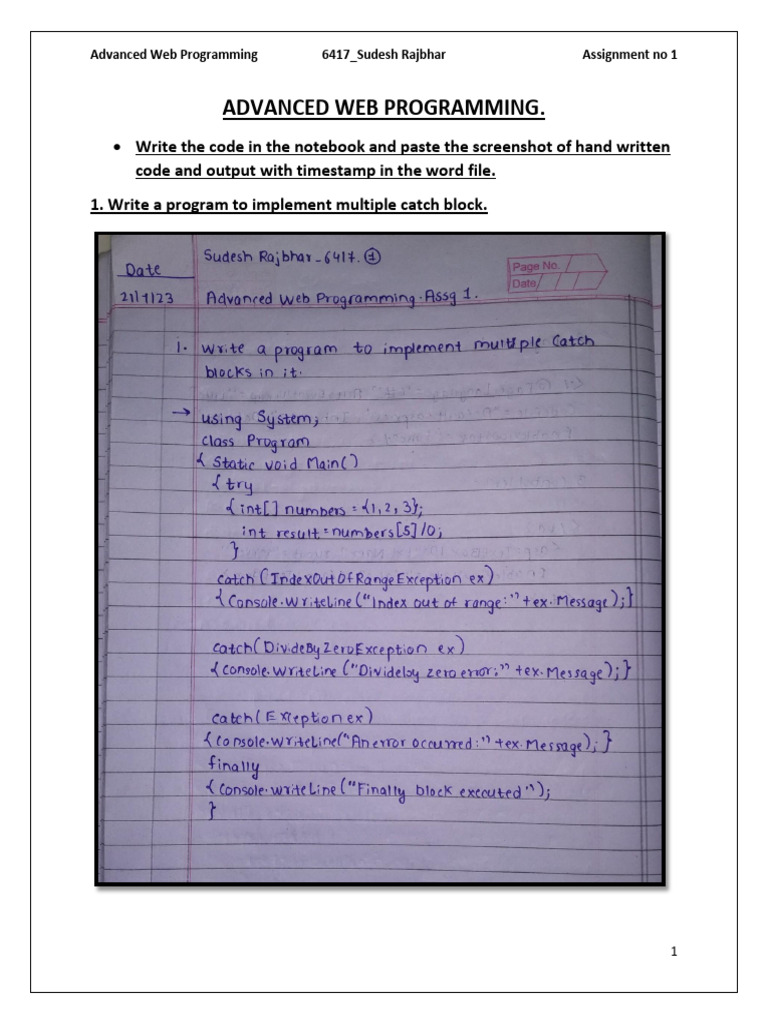 Advanced Web Programming 6417_Sudesh Rajbhar Assignment no 1
ADVANCED WEB PROGRAMMING.
• Write the code in the notebook and paste the screenshot of hand written
code and output with timestamp in the word file.
1. Write a program to implement multiple catch block.
Sudesh Rajbhar-6417. ①
Page No.
Date
Date
21/7/23 Advanced Web Programming. Assg 1.
1. Write a program to implement multiple Catch
blocks in it.
→ using System;
class Program
{ Static void Main()
{ try
{ int[] numbers = {1, 2, 3};
int result = numbers[5]/0;
}
catch (IndexOutOfRangeException ex)
{ Console.WriteLine("Index out of range:" + ex.Message); }
catch(DivideByZeroException ex)
{ Console.WriteLine ("Divideby zero error:" + ex.Message); }
catch (Exception ex)
{ Console.WriteLine("An error occurred:" + ex.Message); }
finally
{ Console.WriteLine ("Finally block executed");
}
1